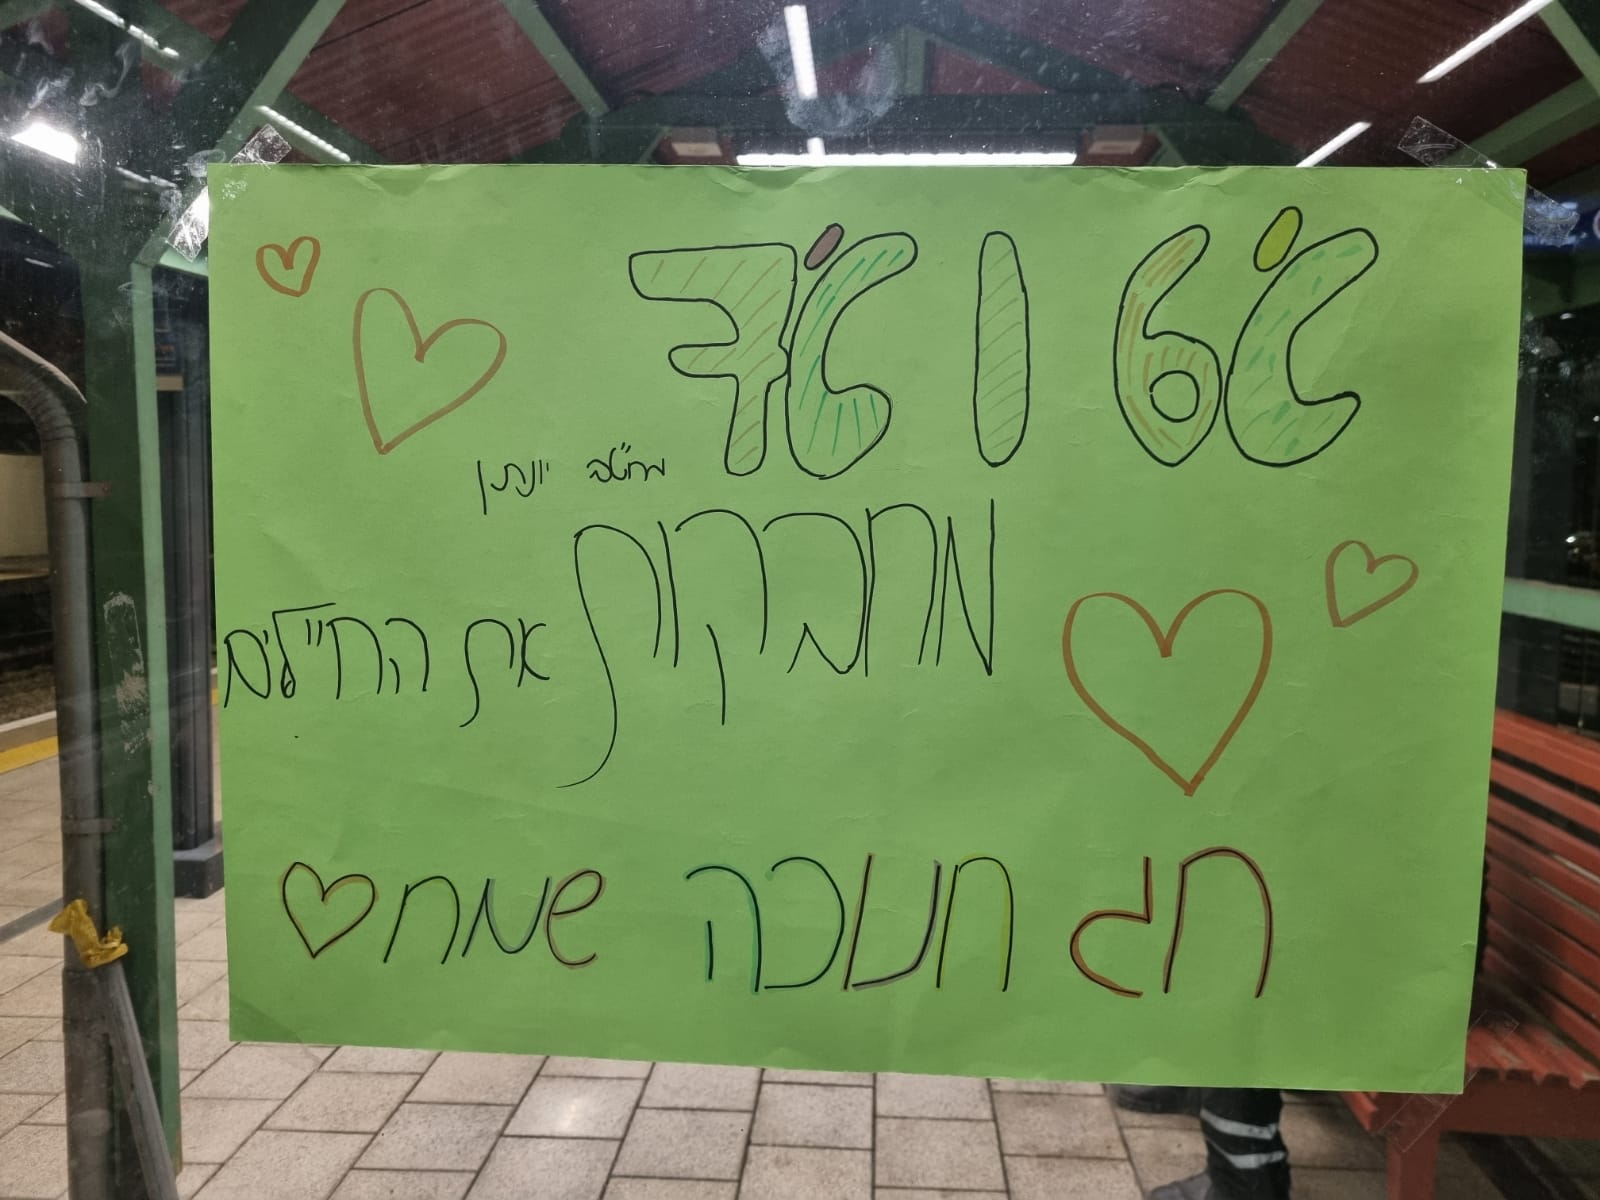 ט'6 ו ט'7
מחט"ב יונתן
מחבקות את החיילים
חג חנוכה שמח